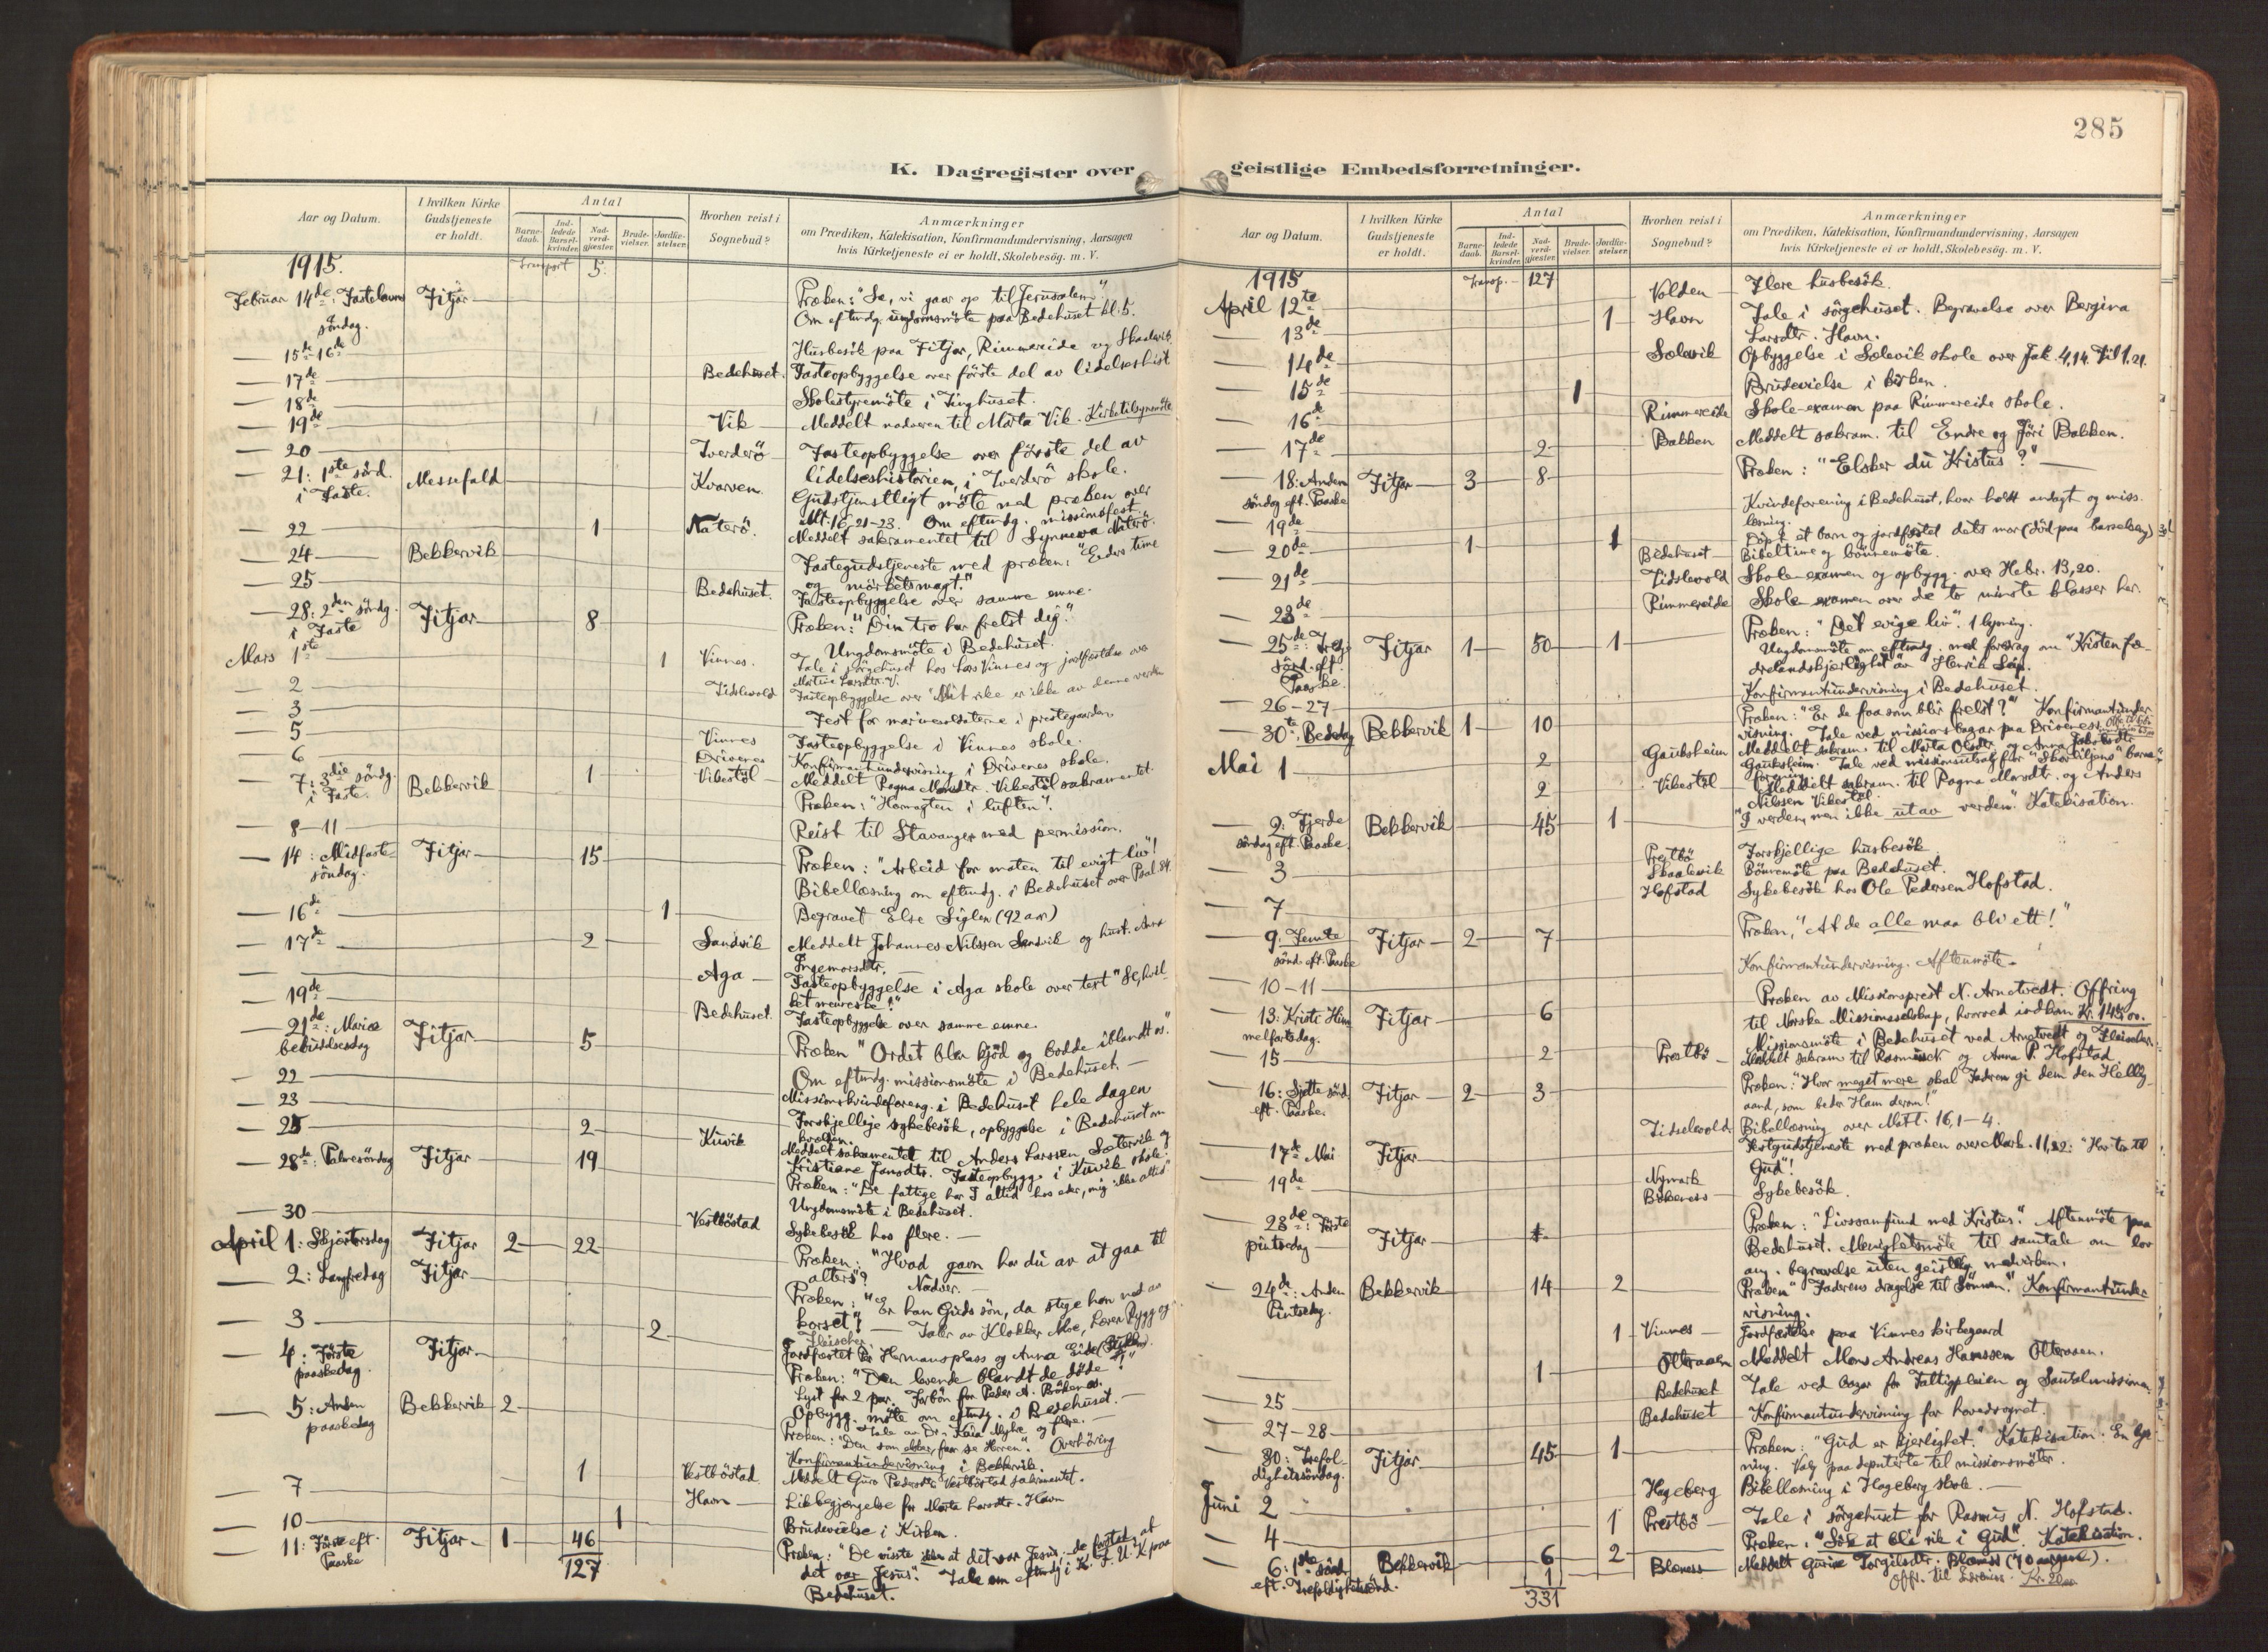 K. Dagregister over
Aar og Datum.
I hvilken Kirke Gudstjeneste er holdt.
Antal
Barnedaab.
Indledede Barselkvinder.
Nadverdgjæster.
Brudevielser.
Jordfæstelser.
Hvorhen reist i Sognebud?
Anmærkninger
om Prædiken, Katekisation, Konfirmandundervisning, Aarsagen
hvis Kirketjeneste ei er holdt, Skolebesøg. m. V.
1915. Transport 5.
Februar 14de: Fastelavns søndag. Fitjar Præken: "Se, vi gaar op til Jerusalem".
Om eftmdg. ungdomsmöte paa Bedehuset kl. 5.
— 15de 16de Husbesök paa Fitjar, Rimmereide og Skaalevik
— 17de Bedehuset. Fasteopbyggelse over förste del av lidelseshist
— 18de Skolestyremöte i Tinghuset.
— 19de 1 Vik Meddelt nadveren til Marta Vik. Kirketilsynsmöte
— 20 Tverderö Fasteopbyggelse over förste del av
lidelseshistorien, i Tverderö skole.
— 21: 1ste sönd. i Faste. Messefald Kvarven. Gudstjenstligt möte med præken over
Mt. 16, 21-23. Om eftmdg. missionsfest
— 22 1 Naterö. Meddelt sakramentet til Synneva Naterö.
— 24 Bekkervik Fastegudstjeneste med præken: "Eders time
og mörkets magt."
— 25 Bedehuset. Fasteopbyggelse over samme emne.
— 28: 2den söndg. i Faste Fitjar 8 Præken: "Din tro har frelst dig".
Ungdomsmöte i Bedehuset.
Mars 1ste 1 Vinnes. Tale i sörgehuset hos Lars Vinnes og jordfæstelse over
Martine Larsdtr. V.
— 2 Tidslevold Fasteopbyggelse over "Mit rike er ikke av denne verden
— 3 Fest for marinesoldaterne i prestegaarden.
— 5 Vinnes Fasteopbyggelse i Vinnes skole.
— 6 Drivenes Konfirmantundervisning i Drivenes skole.
— 7: 3die söndg. i Faste. Bekkervik 1 Vikestöl Meddelt Ragna Mansdtr. Vikestöl sakramentet.
Præken: "Hærmagten i luften".
— 8-11 Reist til Stavanger med permission.
— 14: Midfaste söndag. Fitjar 15 Præken: "Arbeid for maten til evigt liv"!
Bibellæsning om eftmdg. i Bedehuset over Psal. 84.
— 16de 1 Begravet Else Siglen (92 aar)
— 17de 2 Sandvik Meddelt Johannes Nilssen Sandvik og hust. Anna
Ingemorsdtr.
— Aga Fasteopbyggelse i Aga skole over text "Se, hvilket menneske!"
— 19de Bedehuset. Fasteopbyggelse over samme emne.
— 21de: Mariæ bebudelsesdag Fitjar 5 Præken "Ordet blev kjöd og bodde iblandt os".
Om eftmdg. missionsmöte i Bedehuset.
— 22 Missionskvindeforeng. i Bedehuset hele dagen
— 23 Forskjellige sykebesök, opbyggelse i Bedehuset om
kvelden.
— 25 2 Kuvik Meddelt sakramentet til Anders Larssen Sætervik og
Kristiane Jansdtr. Fasteopbygg. i Kuvik skole.
— 28de: Palmesöndag Fitjar 19 Præken: "De fattige har I altid hos eder, mig ikke altid"
Ungdomsmöte i Bedehuset.
— 30 Vestböstad Sykebesök hos flere.
April 1: Skjærtorsdag Fitjar 2 22 Præken: "Hvad gavn har du av at gaa til
alters"? Nadver.
— 2: Langfredag Fitjar Præken: "Er han Guds sön, da stige han ned av
korset"! — Taler av Klokker Moe, Lærer Rygg og
Fleischer.
— 3 2 Jordfæstet Hermansplass og Anna Eide
— 4: Förste paaskedag. Fitjar Præken: "Den levende blandt de döde"!
Lyst for 2 par. Forbön for Peder A. Bökenes.
Opbygg. möte om eftmdg. i Bedehuset.
Tale av Dr. Kaia Myhre og flere.
— 5: Anden paaskedag Bekkervik 2 Præken: "Den som elsker, faar se Herren". Overhöring
Konfirmantundervisning i Bekkervik.
— 7 1 Vestböstad Meddelt Guro Pedersdtr. Vestböstad sakramentet.
Havn Likbegjængelse for Marta Larsdtr. Havn
— 10 1 Brudevielse i Kirken.
— 11: Förste eft. Paaske Fitjar 1 46 Præken: "De visste ikke at det var Jesus; de forstod at
det var Jesus". Tale om eftmdg i K. F. U. K paa
127 Bedehuset.
285
geistlige Embedsforretninger.
Aar og Datum.
I hvilken Kirke Gudstjeneste er holdt.
Antal
Barnedaab.
Indledede Barselkvinder.
Nadverdgjæster.
Brudevielser.
Jordfæstelser.
Hvorhen reist i Sognebud?
Anmærkninger
om Prædiken, Katekisation, Konfirmandundervisning, Aarsagen
hvis Kirketjeneste ei er holdt, Skolebesøg. m. V.
1915 Transp. 127
April 12te Volden Flere husbesök.
— 13de 1 Havn Tale i sörgehuset. Begravelse over Bergina
Larsdtr. Havn.
— 14de Sælevik Opbyggelse i Sælevik skole over Jak. 4,14. Fil 1,21.
— 15de 1 Brudevielse i kirken.
— 16de Rimmereide Skole-examen paa Rimmereide skole.
— 17de 2 Bakken Meddelt sakram. til Endre og Jöri Bakken.
— 18: Anden söndag eft. Paaske Fitjar 3 8 Præken: "Elsker du Kristus?"
— 19de Kvindeforening i Bedehuset, hvor holdt andagt og miss.
læsning.
— 20de 1 1 Döpt et barn og jordfæstet dets mor (död paa barselseng)
Bedehuset Bibeltime og bönnemöte.
— 21de Tidslevold Skole-examen og opbygg. over Hebr. 13,20.
— 23de Rimmereide Skole-examen over de to minste klasser her.
— 25de: Tredje sönd. eft. Paaske. Fitjar 1 50 1 Præken: "Det evige liv". 1 lysning.
Ungdomsmöte om eftmdg. med foredrag om "Kristen fædrelandskjærlighet" av Henrik Seip.
— 26-27 Konfirmantundervisning i Bedehuset.
— 30te. Bededag Bekkervik 1 10 Præken: "Er de faa som blir frelst?" Konfirmantundervisning. Tale ved missionsbazar paa Drivenes.
Mai 1 2 Gauksheim Meddelt sakram. til Marta Olsdtr. og Anna Jakobsdtr.
Gauksheim. Tale ved missionsutsalg for "Skovliljens" barneforening.
2 Vikestöl Meddelt sakram. til Ragna Mansdtr. og Anders
Nilssen Vikestöl.
— 2: Fjerde söndag eft. Paaske. Bekkervik 45 1 "I verden, men ikke utav verden". Katekisation.
— 3 Prestbö Forskjellige husbesök.
Skaalevik Bönnemöte paa Bedehuset.
— 7 Hofstad Sykebesök hos Ole Pedersen Hofstad.
— 9. Femte sönd. eft. Paaske Fitjar 2 7 Præken, "At de alle maa bli ett!"
— 10-11 Konfirmantundervisning. Aftenmöte.
— 13: Kristi Himmelfartsdag. Fitjar 6 Præken av Missionsprest N. Arnetvedt. Offring
til Norske Missionsselskap, hvorved indkom Kr. 145,00.
Missionsmöte i Bedehuset ved Arnetvedt og Fleischer.
— 15 2 Prestbö Meddelt sakram til Rasmus N og Anna P. Hofstad.
— 16: Sjette sönd. eft. Paaske. Fitjar 2 3 Præken: "Hvor meget mere skal Faderen gi dem den Helligaand, som beder Ham derom!"
Tidselvold Bibellæsning over Matt. 16,1-4.
— 17de Mai Fitjar Festgudstjeneste med præken over Mark. 11,22: "Hav tro til
Gud"!
— 19de Nymark
Bökenes Sykebesök.
— 23de: Förste pintsedag Fitjar Præken: "Livssamfund med Kristus". Aftenmöte paa
Bedehuset. Menighetsmöte til samtale om lov
ang. begravelse uten geistlig medvirken.
— 24de: Anden Pintsedag. Bekkervik 14 2 Præken "Faderens dragelse til Sönnen". Konfirmantundervisning.
1 Vinnes Jordfæstelse paa Vinnes kirkegaard
1 Olteraaen Meddelt Mons Andreas Hanssen Olteraaen.
— 25 Bedehuset Tale ved bazar for Fattigpleien og Santalmissionen
— 27-28 Bedehuset Konfirmantundervisning for hovedsognet.
— 30: Trefoldighetssöndag. Fitjar 45 1 Præken: "Gud er kjærlighet". Katekisation. En lysning. Valg paa deputerte til missionsmöter.
Juni 2 Hageberg Bibellæsning i Hageberg skole.
— 4 1 Prestbö Tale i sörgehuset for Rasmus N. Hofstad.
— 6: 1ste sönd. eft. Trefoldighetssönd. Bekkervik 6 2 Præken: "Sök at bli rik i Gud". Katekisation.
1 Blænes Meddelt Gurine Torgilsdtr. Blænes (70 aar gml.).
331 Offr. til Kr. 20,00